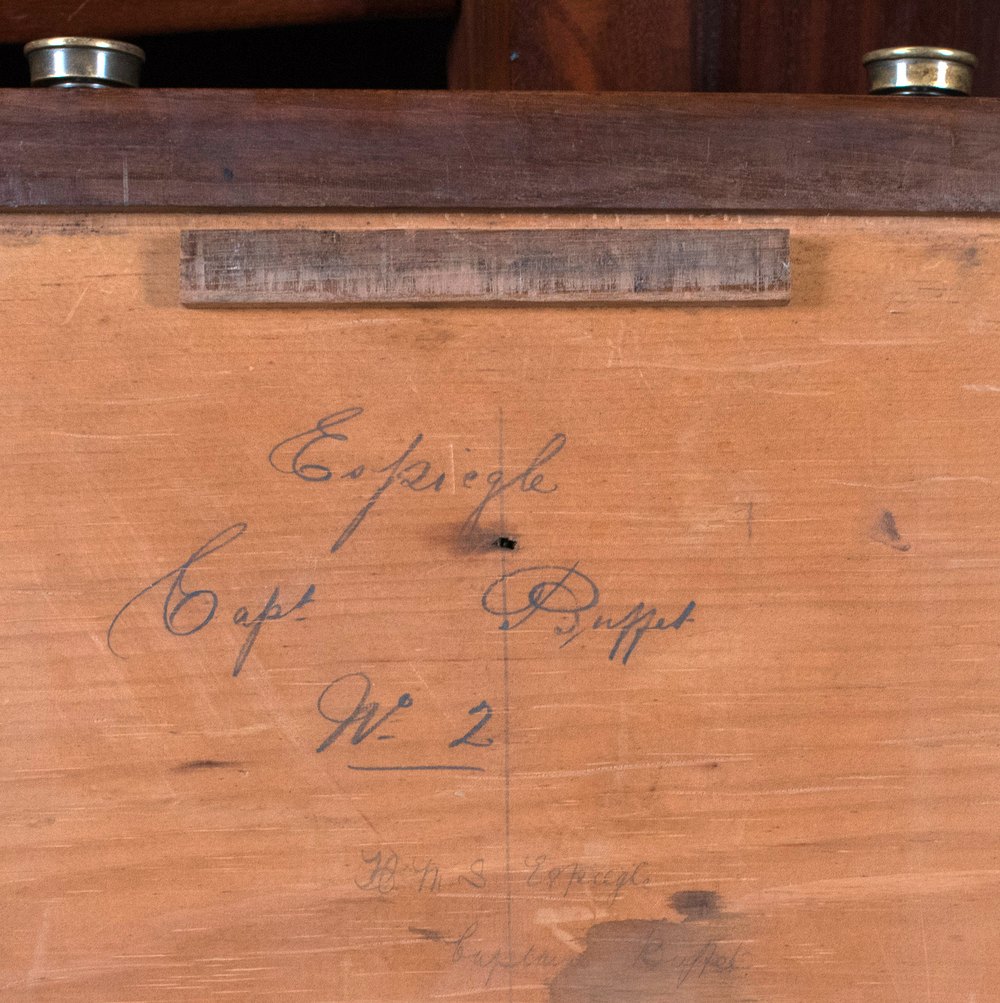 Espiegle
Capt Buffet
No 2
H M S Espiegle
Captain Buffet